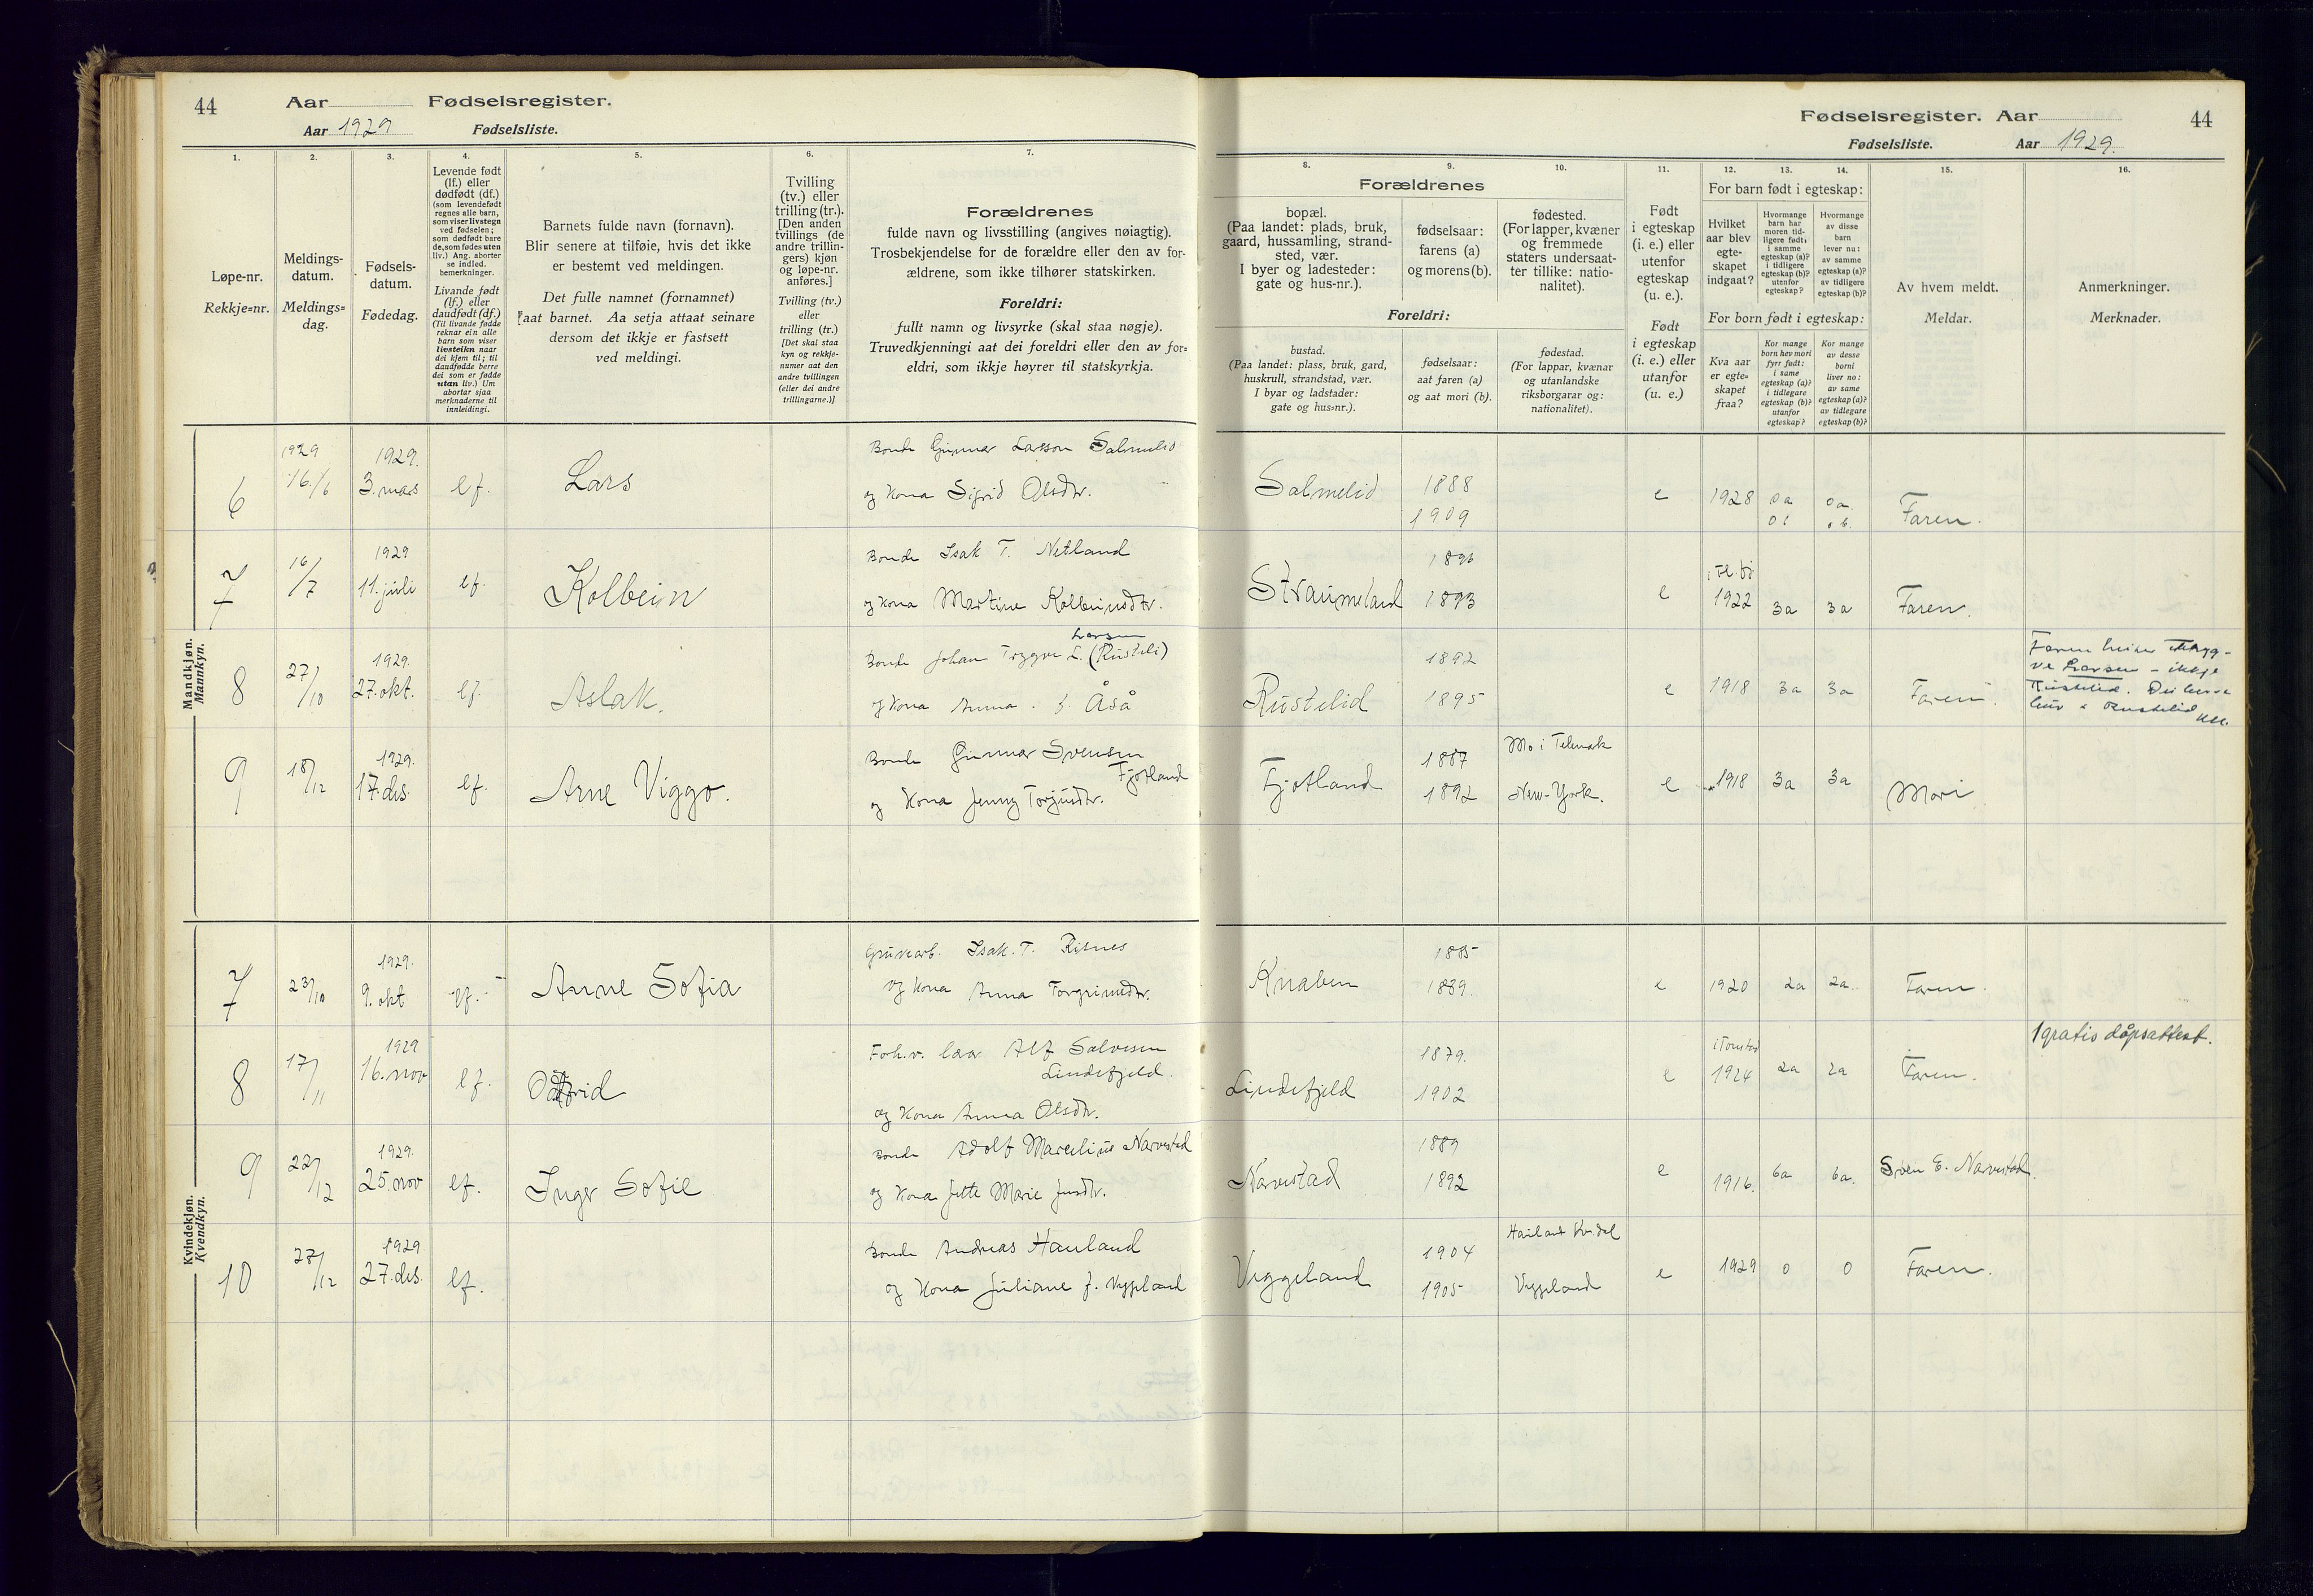 44
Aar Fødselsregister.
Aar 1929 Fødselsliste.
1.
2.
3.
4.
5.
6.
7.
Løpe-nr.
Rekkje=nr.
Meldings-
datum.
Meldings=
dag.
Fødsels-
datum.
Fødedag.
Levende født
(lf.) eller
dødfødt (df.)
(som levendefødt
regnes alle barn,
som viser livstegn
ved fødselen;
som dødfødt bare
de, som fødes uten
liv.) Ang. aborter
se indled.
bemerkninger.
Livande født
(lf.) eller
daudfødt (df.)
(Til livande fødde
reknar ein alle
barn som viser
livsteikn naar
dei kjem til; til
daudfødde berre
dei som er fødde
utan liv.) Um
abortar sjaa
merknaderne til
innleidingi.
Barnets fulde navn (fornavn).
Blir senere at tilføie, hvis det ikke
er bestemt ved meldingen.
Det fulle namnet (fornamnet)
aat barnet. Aa setja attaat seinare
dersom det ikkje er fastsett
ved meldingi.
Tvilling
(tv.) eller
trilling (tr.).
[Den anden
tvillings (de
andre trillin-
gers) kjøn
og løpe-nr.
anføres.]
Tvilling (tv.)
eller
trilling (tr.)
[Det skal staa
kyn og rekkje-
numer aat den
andre tvillingen
(eller dei andre
trillingarne.)]
Forældrenes
fulde navn og livsstilling (angives nøiagtig).
Trosbekjendelse for de forældre eller den av for-
ældrene, som ikke tilhører statskirken.
Foreldri:
fullt namn og livsyrke (skal staa nøgje).
Truvedkjenningi aat dei foreldri eller den av for=
eldri, som ikkje høyrer til statskyrkja.
Fødselsregister. Aar 44
Fødselsliste. Aar 1929.
8.
9.
10.
11.
12.
13.
14.
15.
16.
Forældrenes
bopæl.
(Paa landet: plads, bruk,
gaard, hussamling, strand-
sted, vær.
I byer og ladesteder:
gate og hus-nr.).
fødselsaar:
farens (a)
og morens (b).
fødested.
(For lapper, kvæner
og fremmede
staters undersaat-
ter tillike: natio-
nalitet).
Foreldri:
bustad.
(Paa landet: plass, bruk, gard,
huskrull, strandstad, vær.
I byar og ladstader:
gate og hus=nr.).
fødselsaar:
aat faren (a)
og aat mori (b).
fødestad.
(For lappar, kvænar
og utanlandske
riksborgarar og:
nationalitet).
Født
i egteskap
(i. e.) eller
utenfor
egteskap
(u. e.).
Født
i egteskap
(i. e.) eller
utanfor
(u. e.)
For barn født i egteskap:
Hvilket
aar blev
egte-
skapet
indgaat?
Hvormange
barn har
moren tid-
ligere født:
i samme
egteskap (a)?
i tidligere
egteskap (b)?
utenfor
egteskap?
Hvormange
av disse
barn
lever nu:
av samme
egteskap (a)?
av tidligere
egteskap (b)?
For born født i egteskap:
Kva aar
er egte=
skapet
fraa?
Kor mange
born hev mori
fyrr født:
i same
egteskap (a)?
i tidlegare
egteskap (b)?
utanfor
egteskap?
Kor mange
av desse
borni
liver no:
av same
egteskap (a)?
av tidlegare
egteskap (b)?
Av hvem meldt.
Meldar.
Anmerkninger.
Merknader.
Mandkjøn.
Mannkyn.
6 1929 16/6 1929. 3. mars lf. Lars Bonde Gunnar Larsson Salmelid
og Kona Sigrid Olsdtr.
Salmelid 1888 1909 e 1928 0a 0a Faren.
7 16/7 1929 11. juli lf. Kolbein Bonde Isak T. Netland
og Kona Martine Kolbeinsdtr.
Straumeland 1896 1893 e 1922 3a 3a Faren.
8 27/10 1929. 27. okt. lf. Aslak. Bonde Johan Trygve L. (Rustelid)
Larsen
og Kona Anna f. Åså
Rustelid 1892 1895 e 1918 3a 3a Faren.
Faren heiter Trygg-
ve Larsen - ikkje
Rustelid.
9 18/12 1929. 17. des. lf. Arne Viggo. Bonde Gunnar Svensen
Fjotland
og Kona Jenny Torjusdtr.
Fjotland 1887 1892 Mo i Telemark New-York. e 1918 3a 3a Mori
Kvindekjøn.
Kvendkyn.
7 23/10 1929. 9. okt lf. Anne Sofia Gruvearb. Isak. T. Risnes
og Kona Anna Torgrimsdtr.
Knaben 1885 1889. e 1920 2a 2a. Faren.
8 17/11 1929 16. nov lf. Alf Salvesen
Lindefjeld.
og Kona Anna Olsdtr.
Lindefjeld 1879. 1902 e i Tonstad 1924 2a 2a Faren.
1 gratis dåpsattest.
9 22/12 1929. 25. nov lf. Inger Sofie Bonde Adolf Marselius Narvestad
og Kona Jette Marie Jensdtr.
Narvestad 1889 1892 e 1916. 6a 6a. Sven E. Narvestad.
10 28/12 1929 27. des. lf. Bonde Andreas Hauland
og Kona Juliane f. Veggeland
Veggeland 1904 1905 Veggeland e 1929 0 0 Faren.